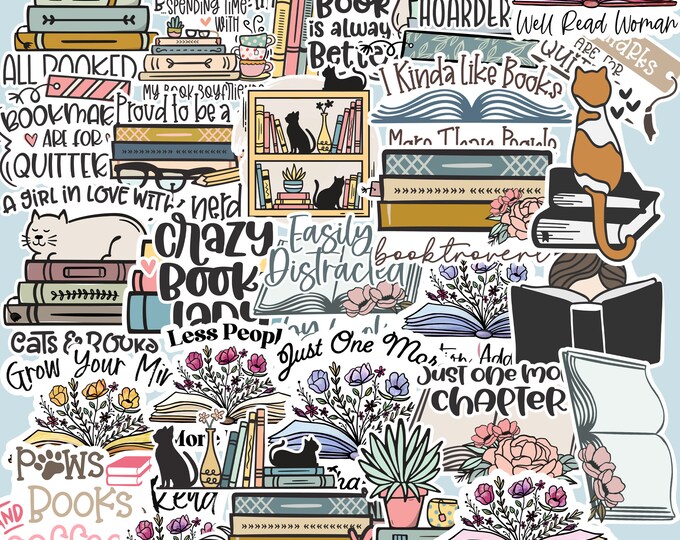 SPENDING TIME
WITH
BOOK
is always
Better
HOARDER
Well Read Woman
ALL BOOKED
My Book Boyfriend
I Kinda Like Books
More Than People
BOOKMARKS
ARE FOR
QUITTERS
ARE FOR
QUITTERS
Proud to be a
nerd
A GIRL IN LOVE WITH
CRAZY
BOOK
LADY
Easily
Distracted
booktrovert
CATS & BOOKS
GROW YOUR MIN
Less Peopl
Just One Mor
JUST ONE MO
CHAPTER
More
PAWS
BOOKS
AND
COFFEE
Read